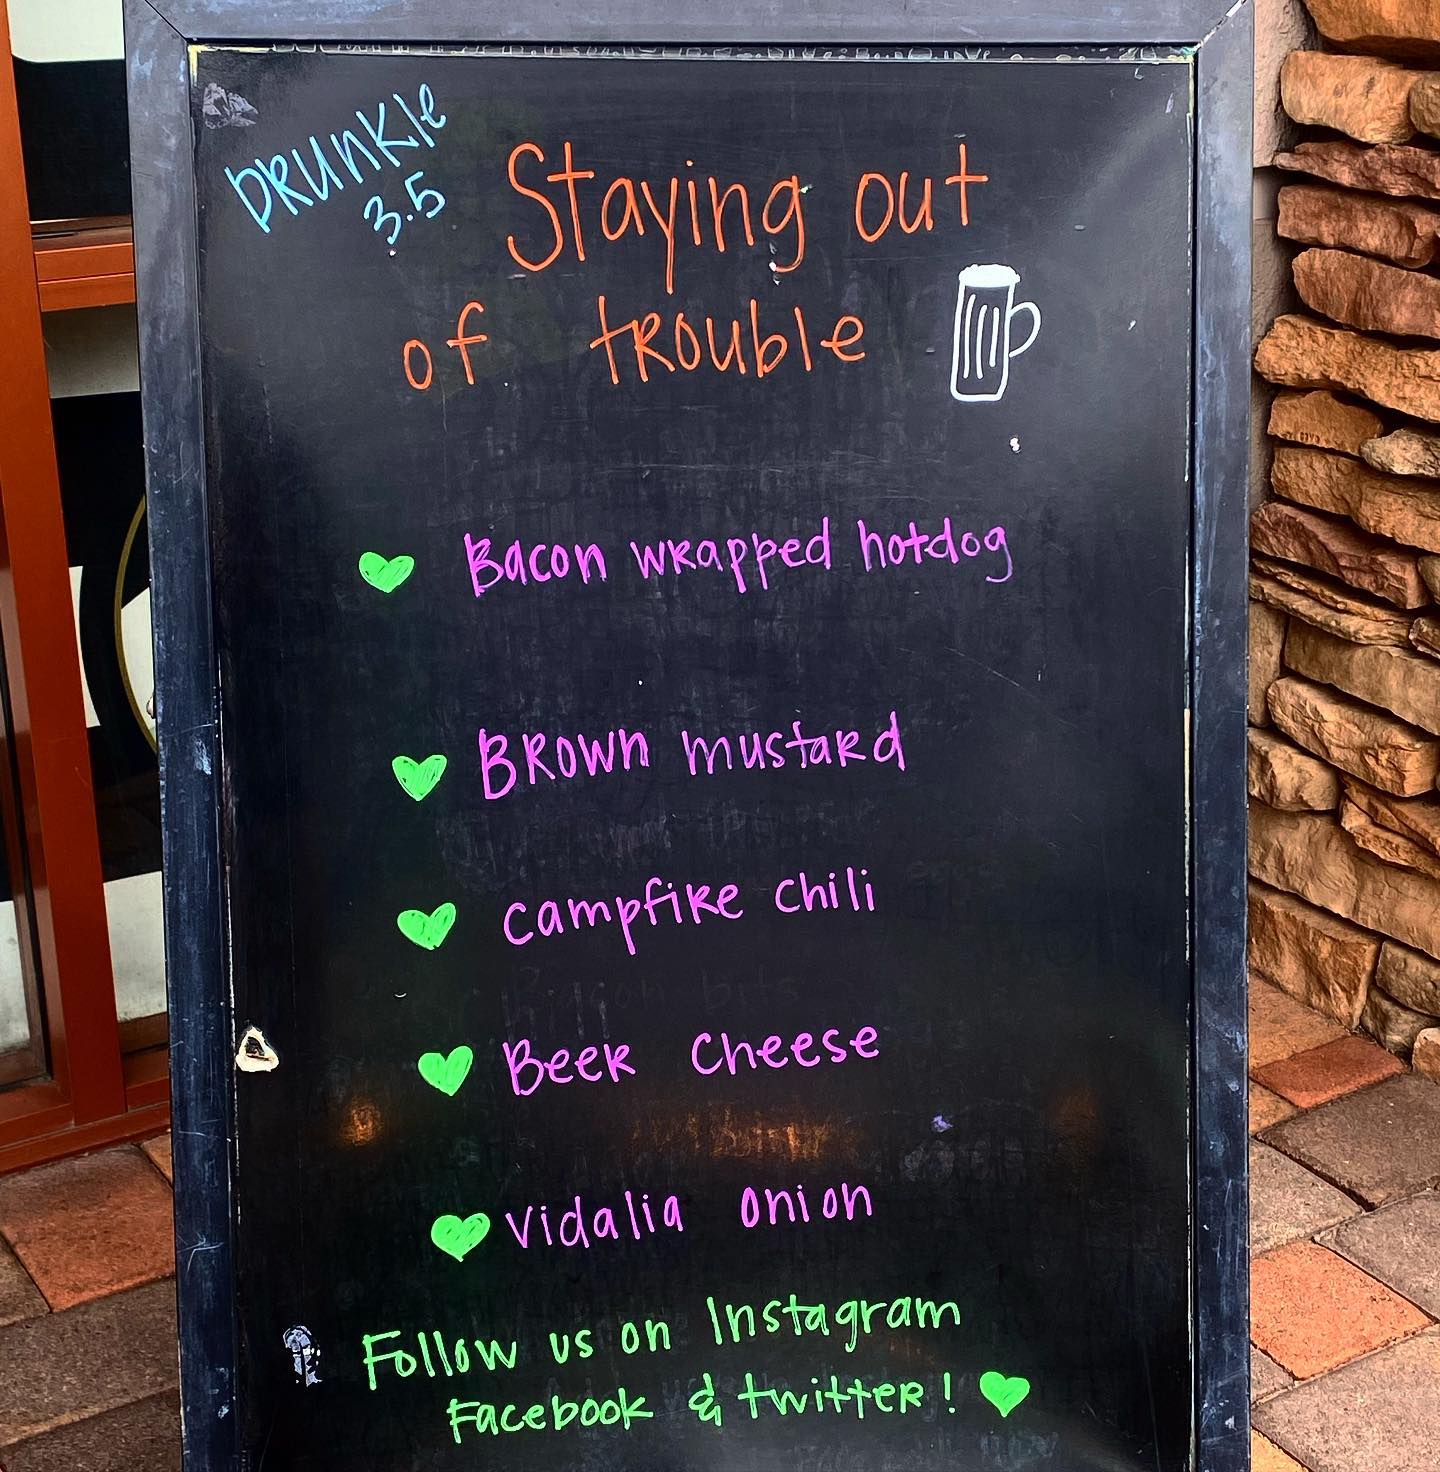 DRUNKle
3.5
Staying out
of trouble
Bacon wrapped hotdog
Brown mustard
Campfire Chili
Beer Cheese
Vidalia onion
Follow us on Instagram
Facebook & twitter!